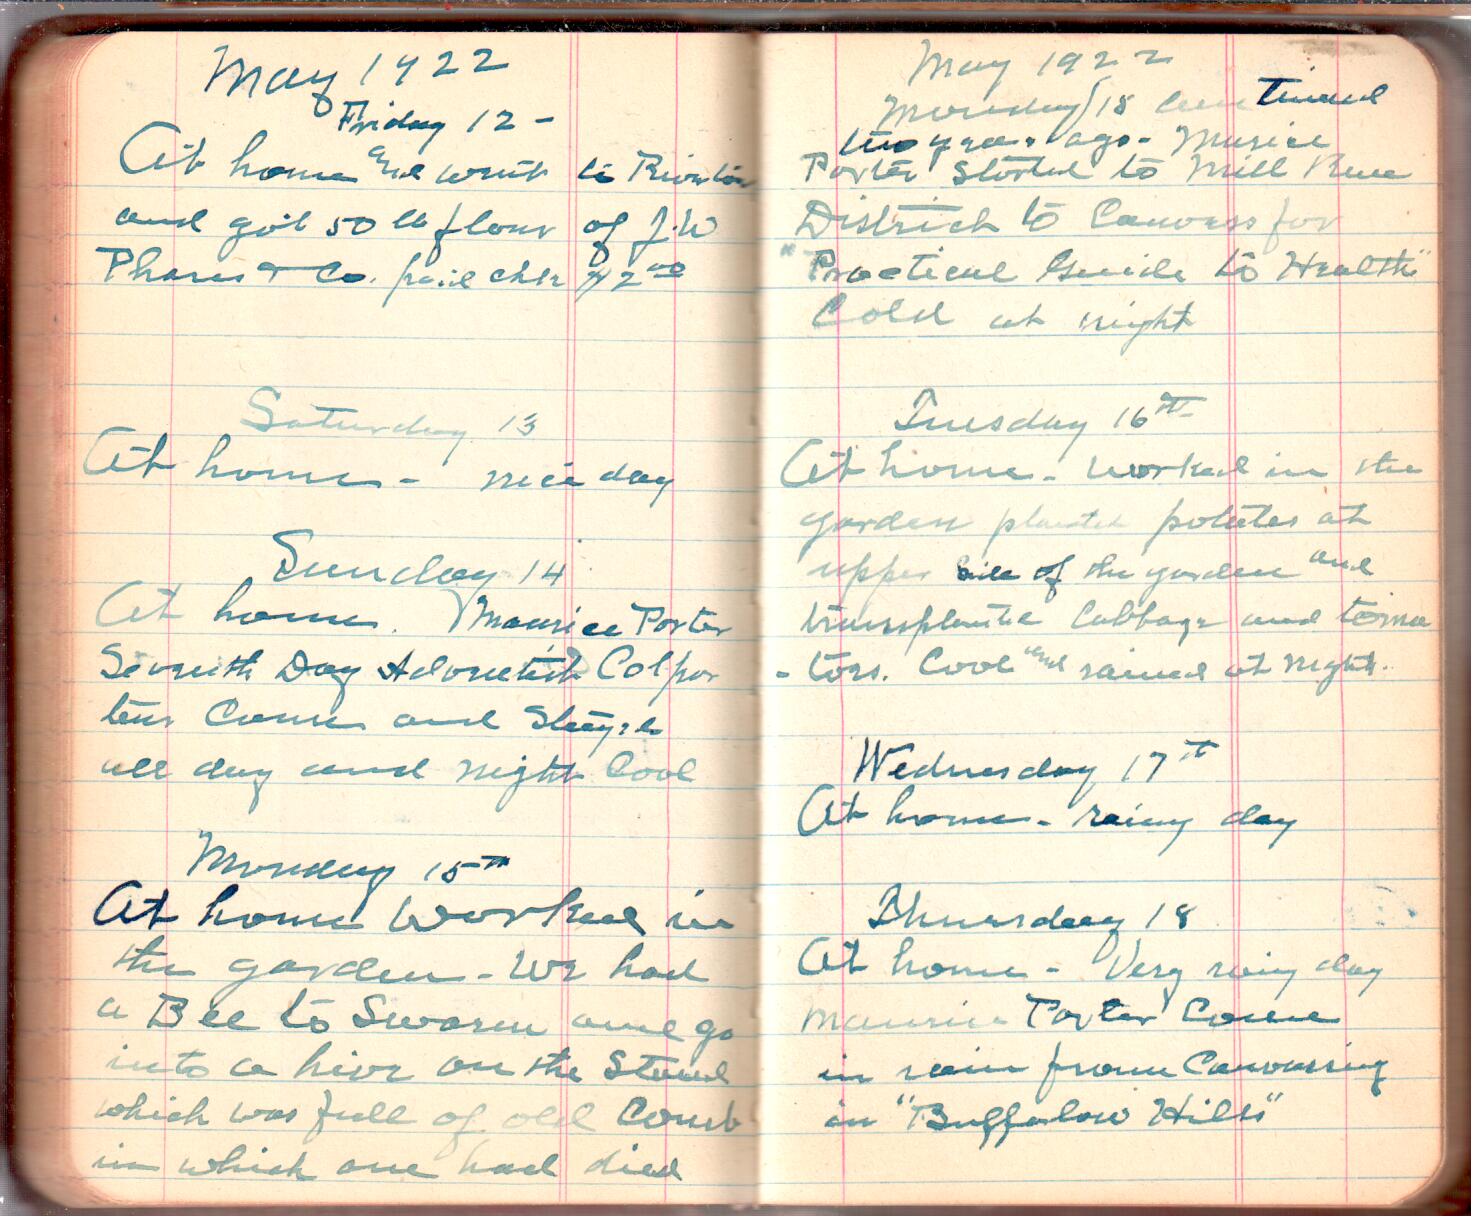 May 1922
Friday 12 -
At home and went to Riverton
and got 50 lb flour of J.W
Phares & Co. paid chk $2.00
Saturday 13
At home - nice day
Sunday 14
At home. Maurice Porter
Seventh Day Adventist Colpor
teur Came and Stayed
all day and night Cool
Monday 15th
At home Worked in
the garden - We had
a Bee to Swarm and go
into a hive on the Stand
which was full of old Comb
in which one had died
May 1922
Monday 15 continued
two years ago - Maurice
Porter Started to Mill Run
District to Canvass for
"Practical Guide to Health"
Cold at night
Tuesday 16th
At home - worked in the
garden planted potatoes at
upper side of the garden and
transplanted Cabbage and toma
- toes. Cool and rained at night.
Wednesday 17th
At home - rainy day
Thursday 18
At home - Very rainy day
Maurice Porter Come
in rain from Canvassing
in "Buffalow Hills"